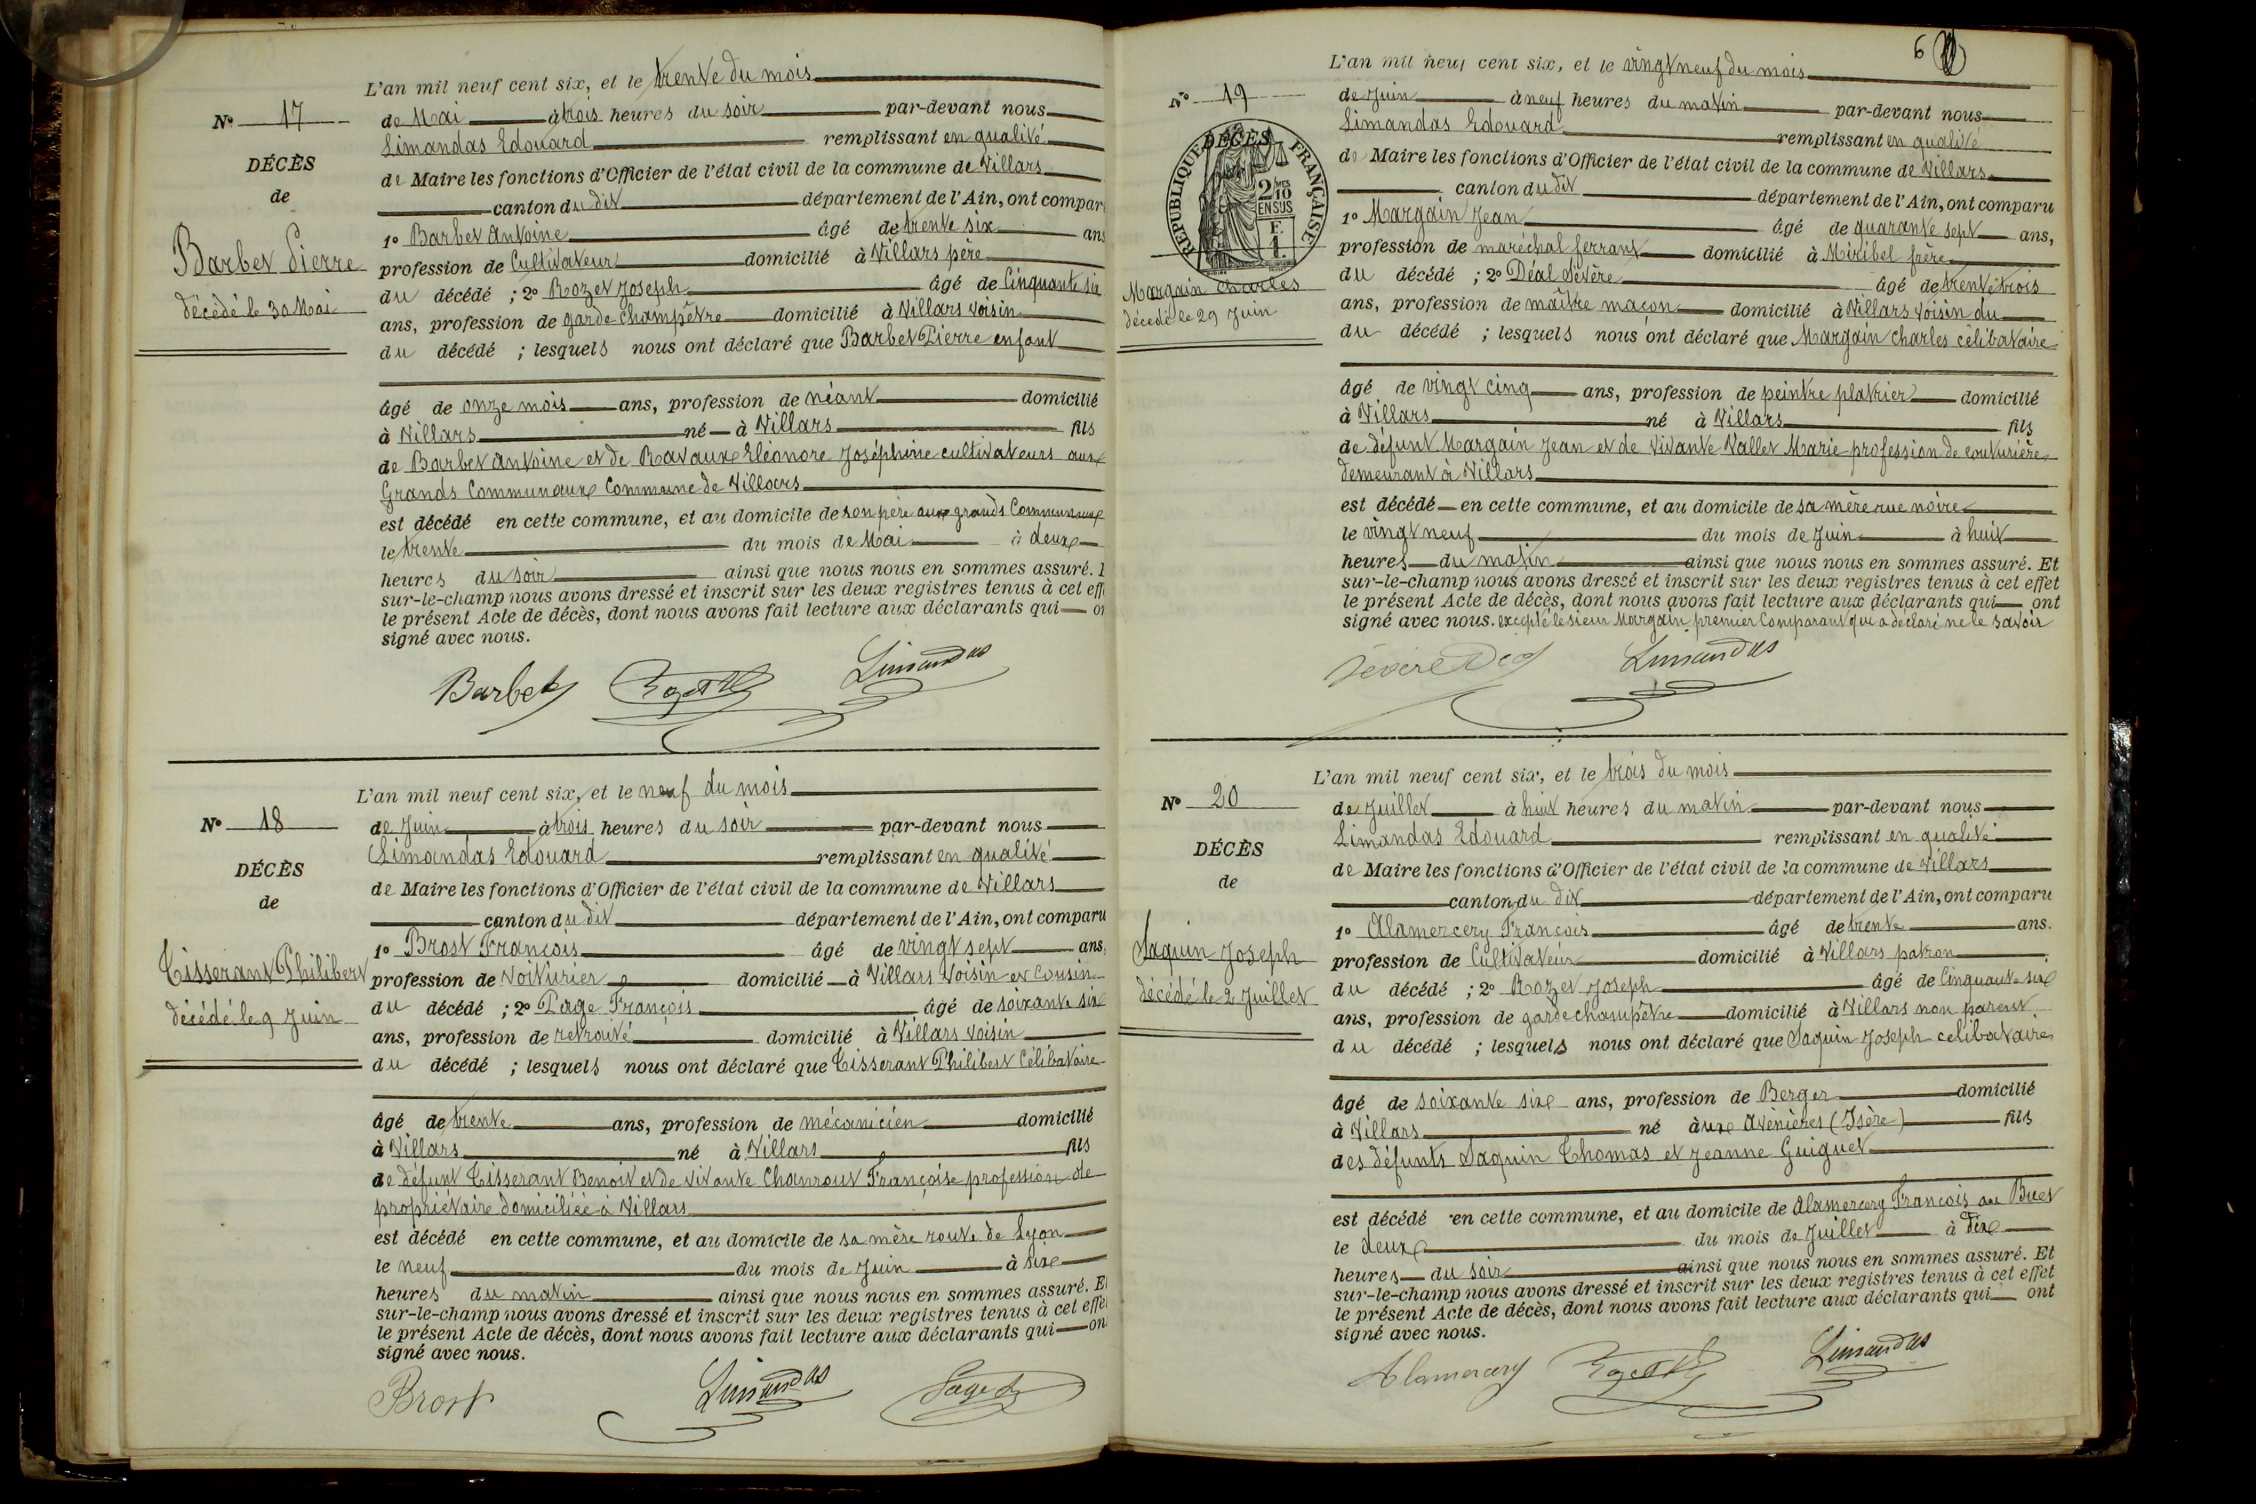 L'an mil neuf cent six, et le trente du mois
N° 17
de Mai à trois heures du soir par-devant nous
Limandas Edouard remplissant en qualité
DÉCÈS
de Maire les fonctions d'Officier de l'état civil de la commune de Villars
de
canton du dit département de l'Ain, ont compar
1° Barbet Antoine âgé de trente six ans
Barbet Pierre
profession de Cultivateur domicilié à Villars père
du décédé ; 2° Rozet Joseph âgé de Cinquante six
décédé le 30 Mai
ans, profession de garde champêtre domicilié à Villars voisin
du décédé ; lesquels nous ont déclaré que Barbet Pierre enfant
âgé de onze mois ans, profession de néant domicilié
à Villars né à Villars fils
de Barbet Antoine et de Ravaux Eléonore Joséphine cultivateurs aux
Grands Communaux Commune de Villars
est décédé en cette commune, et au domicile de son père aux grands Communaux
le trente du mois de Mai à deux
heures du soir ainsi que nous nous en sommes assuré.
sur-le-champ nous avons dressé et inscrit sur les deux registres tenus à cet eff
le présent Acte de décès, dont nous avons fait lecture aux déclarants qui on
signé avec nous.
Barbet Rozet Limandas
L'an mil neuf cent six, et le neuf du mois
N° 18
de Juin à trois heures du soir par-devant nous
Limandas Edouard remplissant en qualité
DÉCÈS
de Maire les fonctions d'Officier de l'état civil de la commune de Villars
de
canton du dit département de l'Ain, ont comparu
1° Brost François âgé de vingt sept ans
Tisserant Philibert
profession de voiturier domicilié à Villars voisin et cousin
du décédé ; 2° Page François âgé de soixante six
décédé le 9 Juin
ans, profession de retraité domicilié à Villars voisin
du décédé ; lesquels nous ont déclaré que Tisserant Philibert Célibataire
âgé de trente ans, profession de mécanicien domicilié
à Villars né à Villars fils
de défunt Tisserant Benoit et de vivante Chanrout Françoise profession de
propriétaire domiciliée à Villars
est décédé en cette commune, et au domicile de sa mère route de Lyon
le neuf du mois de Juin à six
heures du matin ainsi que nous nous en sommes assuré. E
sur-le-champ nous avons dressé et inscrit sur les deux registres tenus à cet effe
le présent Acte de décès, dont nous avons fait lecture aux déclarants qui on
signé avec nous.
Brost Limandas Page
6
L'an mil neuf cent six, et le vingt neuf du mois
N° 19
de Juin à neuf heures du matin par-devant nous
Limandas Edouard remplissant en qualité
DÉCÈS
RÉPUBLIQUE FRANÇAISE
2/10 EN SUS
F. 1.
de Maire les fonctions d'Officier de l'état civil de la commune de Villars
canton du dit département de l'Ain, ont comparu
1° Margain Jean âgé de quarante sept ans,
profession de maréchal ferrant domicilié à Miribel frère
Margain Charles
du décédé ; 2° Déal Sévère âgé de trente trois
décédé le 29 Juin
ans, profession de maître maçon domicilié à Villars voisin du
du décédé ; lesquels nous ont déclaré que Margain Charles célibataire
âgé de vingt cinq ans, profession de peintre platrier domicilié
à Villars né à Villars fils
de défunt Margain Jean et de vivante Vallet Marie profession de couturière
demeurant à Villars
est décédé en cette commune, et au domicile de sa mère rue noire
le vingt neuf du mois de Juin à huit
heures du matin ainsi que nous nous en sommes assuré. Et
sur-le-champ nous avons dressé et inscrit sur les deux registres tenus à cet effet
le présent Acte de décès, dont nous avons fait lecture aux déclarants qui ont
signé avec nous. excepté le sieur Margain premier Comparant qui a déclaré ne le savoir
Sévère Déal Limandas
L'an mil neuf cent six, et le trois du mois
N° 20
de Juillet à huit heures du matin par-devant nous
Limandas Edouard remplissant en qualité
DÉCÈS
de Maire les fonctions d'Officier de l'état civil de la commune de Villars
de
canton du dit département de l'Ain, ont comparu
1° Alamercery François âgé de trente ans.
Saquin Joseph
profession de Cultivateur domicilié à Villars patron
du décédé ; 2° Rozet Joseph âgé de Cinquante six
décédé le 2 Juillet
ans, profession de garde champêtre domicilié à Villars non parent
du décédé ; lesquels nous ont déclaré que Saquin Joseph célibataire
âgé de soixante six ans, profession de Berger domicilié
à Villars né à aux Avenières (Isère) fils
des défunts Saquin Thomas et Jeanne Guiguet
est décédé en cette commune, et au domicile de Alamercery François au Buet
le deux du mois de Juillet à dix
heures du soir ainsi que nous nous en sommes assuré. Et
sur-le-champ nous avons dressé et inscrit sur les deux registres tenus à cet effet
le présent Acte de décès, dont nous avons fait lecture aux déclarants qui ont
signé avec nous.
Alamercery Rozet Limandas